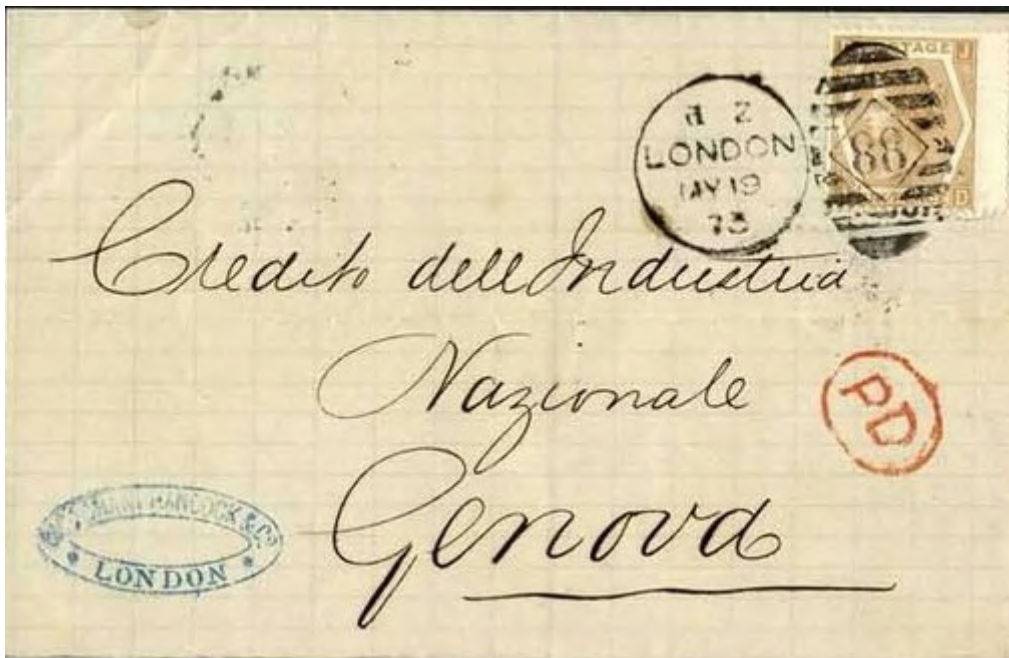 POSTAGE
J
J
D
88
2
LONDON
MAY 19
73
Credito dell Industria
Nazionale
PD
Genova
HANCOCK & Co
LONDON